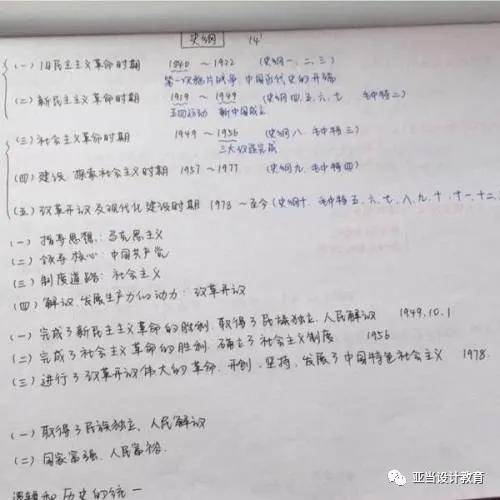 史纲 14
(一) 旧民主主义革命时期 1840 ~ 1922 (史纲一、二、三)
第一次鸦片战争 中国近代史的开端
(二) 新民主主义革命时期 1919 ~ 1949 (史纲四、五、六、七 毛中特二)
五四运动 新中国成立
(三) 社会主义革命时期 1949 ~ 1956 (史纲八、毛中特三)
三大改造完成
(四) 建设、探索社会主义时期 1957 ~ 1977 (史纲九、毛中特四)
(五) 改革开放及现代化建设时期 1978 ~ 至今 (史纲十、毛中特五、六、七、八、九、十、十一、十二、
(一) 指导思想:马克思主义
(二) 领导核心:中国共产党
(三) 制度道路:社会主义
(四) 解放、发展生产力的动力:改革开放
(一) 完成了新民主主义革命的胜利、取得了民族独立、人民解放 1949.10.1
(二) 完成了社会主义革命的胜利、确立了社会主义制度 1956
(三) 进行了改革开放伟大的革命、开创、坚持、发展了中国特色社会主义 1978.
(一) 取得了民族独立、人民解放
(二) 国家富强、人民富裕
逻辑和历史的统一
亚当设计教育